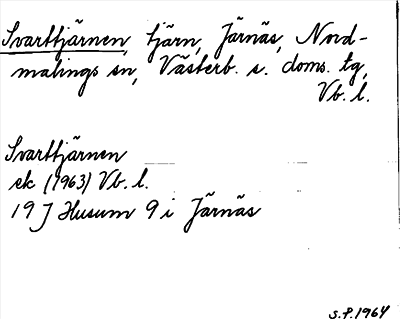 Svarttjärnen, tjärn, Järnäs, Nord-
malings sn, Västerb. s. doms. tg,
Vb. l.
Svarttjärnen
ek (1963) Vb. l.
19 J Husum 9 i Järnäs
S.P. 1964